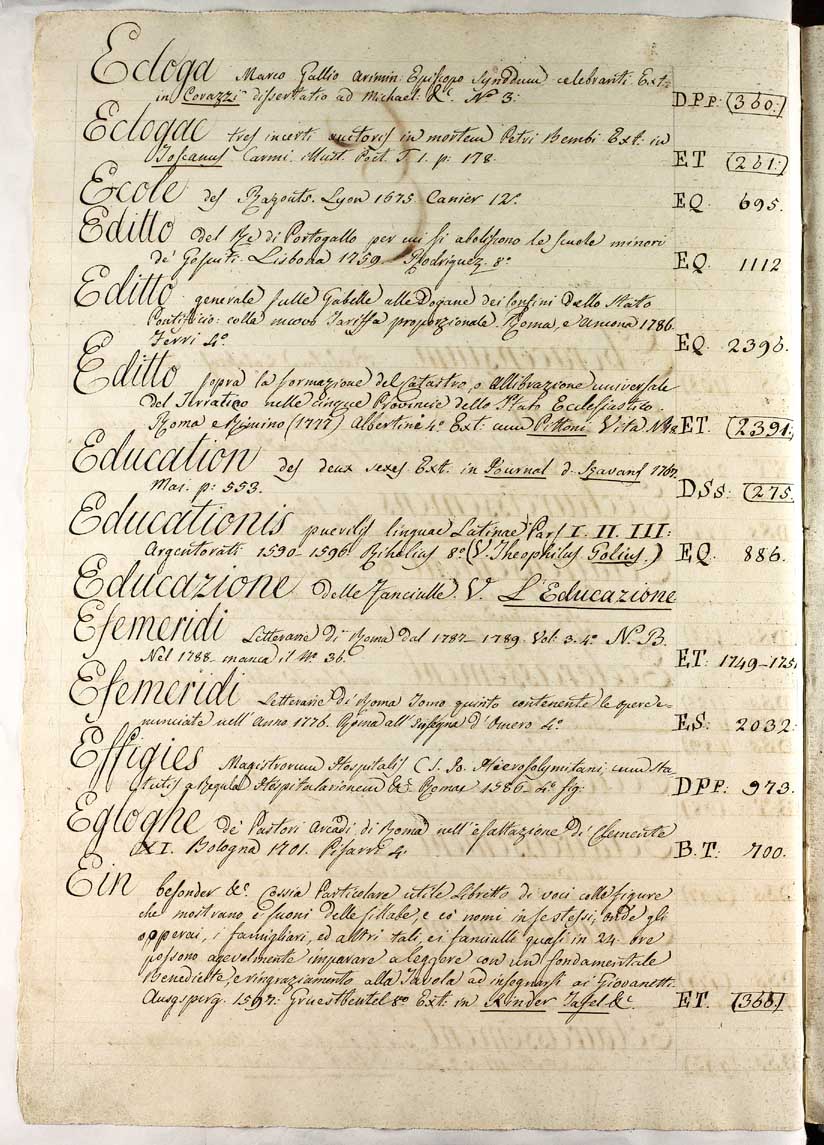 Ecloga Marco Gallio Arimin: Episcopo Synodum celebranti. Ext:
in Corazzi dissertatio ad Michael: &c. No. 3: DPP: (360:)
Eclogae tres incerti auctoris in mortem Petri Bembi Ext: in
Toscanus Carmi. illust. Poet. T. 1. p: 178. ET (261:)
Ecole des Ragouts. Lyon 1675 Canier 12o. EQ. 695.
Editto del Re di Portogallo per cui si aboliscono le scuole minori
de' Gesuiti. Lisbona 1759. Rodriguez. 8o EQ. 1112
Editto generale sulle Gabelle alle Dogane dei Confini dello Stato
Pontificio: colla nuova Tariffa proporzionale. Roma, e Ancona 1786.
Ferri 4o. EQ. 2396.
Editto sopra la formazione del Catastro, o Allibrazione universale
del Terratico nelle cinque Provincie dello Stato Ecclesiastico.
Roma e Rimino (1777) Albertine 4o. Ext: cum Pittoni Vita No. 18. ET. (2391:)
Education des deux sexes Ext. in Journal d. Savans 1762
Mai. p: 553. DSS: (275.
Educationis puerilis linguae Latinae Pars I. II. III:
Argentorati 1590-1596 Rihelius 8o. (V. Theophilus Golius.) EQ. 886.
Educazione delle Fanciulle. V. L'Educazione
Efemeridi Letterarie di Roma dal 1787-1789. Vol: 3. 4o. N.B.
Nel 1788. manca il No. 36. ET: 1749-1751
Efemeridi Letterarie di Roma Tomo quinto contenente le opere e-
nunciate nell'Anno 1776. Roma all'Insegna d'Omero 4o. ES: 2032:
Effigies Magistrorum Hospitalis S. Jo. Hierosolymitani, cum Sta-
tutis a Regula Hospitulariorum &c. Romae 1586. 4o. fig: DPP: 973.
Egloghe de' Pastori Arcadi, di Roma nell'esaltazione di Clemente
XI. Bologna 1701. Pisarri 4. B.T: 700.
Ein besonder &c. Cossia Particolare utile Libretto di voci colle figure
che mostrano i suoni delle sillabe, e co' nomi in se stessi, onde gli
opperai, i famigliari, ed altri tali, e i fanciulli quasi in 24: ore
possono agevolmente imparare a leggere con un fondamentale
Benedicite, e ringraziamento alla Tavola ad insegnarsi ai Giovanetti.
Augsperg. 1597: 8o. Ext: in Kinder Tafel &c. ET. (366:)